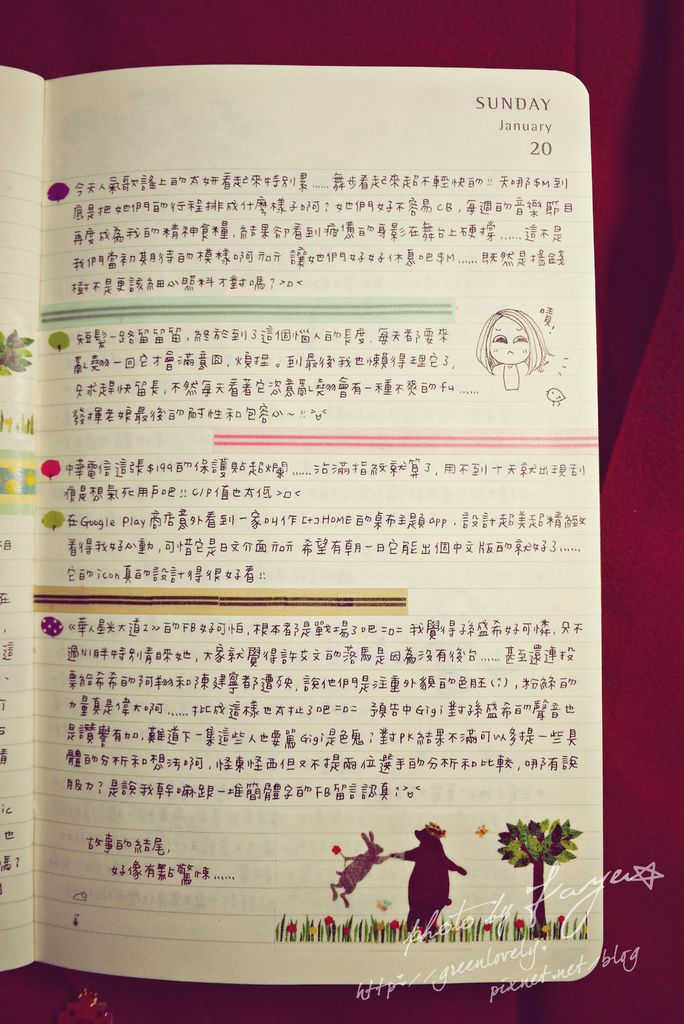 SUNDAY
January
20
今天人氣歌謠上的太妍看起來特別累......舞步看起來超不輕快的!! 天哪$M到
底是把她們的行程排成什麼樣子啊?她們好不容易CB,每週的音樂節目
再度成為我的精神食糧,結果卻看到疲憊的身影在舞台上硬撐......這不是
我們當初期待的模樣啊 讓她們好好休息吧$M......既然是搖錢
樹不是更該細心照料才對嗎?>口<
短髮一路留留留,終於到了這個惱人的長度,每天都要來
亂翹一回它才會滿意囧,煩捏。到最後我也懶得理它了,
只求趕快留長,不然每天看著它恣意亂翹會有一種不爽的fu......
發揮老娘最後的耐性和包容心~!!>"<
嘖!
中華電信這張$199的保護貼超爛......沾滿指紋就算了,用不到十天就出現刮
痕是想氣死用戶吧!! C/P值也太低>口<
在Google Play商店意外看到一家叫作[+]HOME的桌布主題app,設計超美超精緻
看得我好心動,可惜它是日文介面 希望有朝一日它能出個中文版的就好了......
它的icon真的設計得很好看!!
《華人星光大道2》的FB好可怕,根本都是戰場了吧=口= 我覺得孫盛希好可憐,只不
過Ni胖特別青睞她,大家就覺得許艾文的落馬是因為沒有後台......甚至還連投
票給希希的阿翔和陳建寧都遭殃,說他們是注重外貌的色胚(?),粉絲的
力量真是偉大啊......扯成這樣也太扯了吧=口= 預告中Gigi對孫盛希的聲音也
是讚譽有加,難道下一集這些人也要罵Gigi是色鬼?對PK結果不滿可以多提一些具
體的分析和想法啊,怪東怪西但又不提兩位選手的分析和比較,哪有說
服力?是說我幹嘛跟一堆簡體字的FB留言認真?>"<
故事的結尾,
好像有點驚悚......
photo by Kaye
http://greenlovely.
pixnet.net/blog